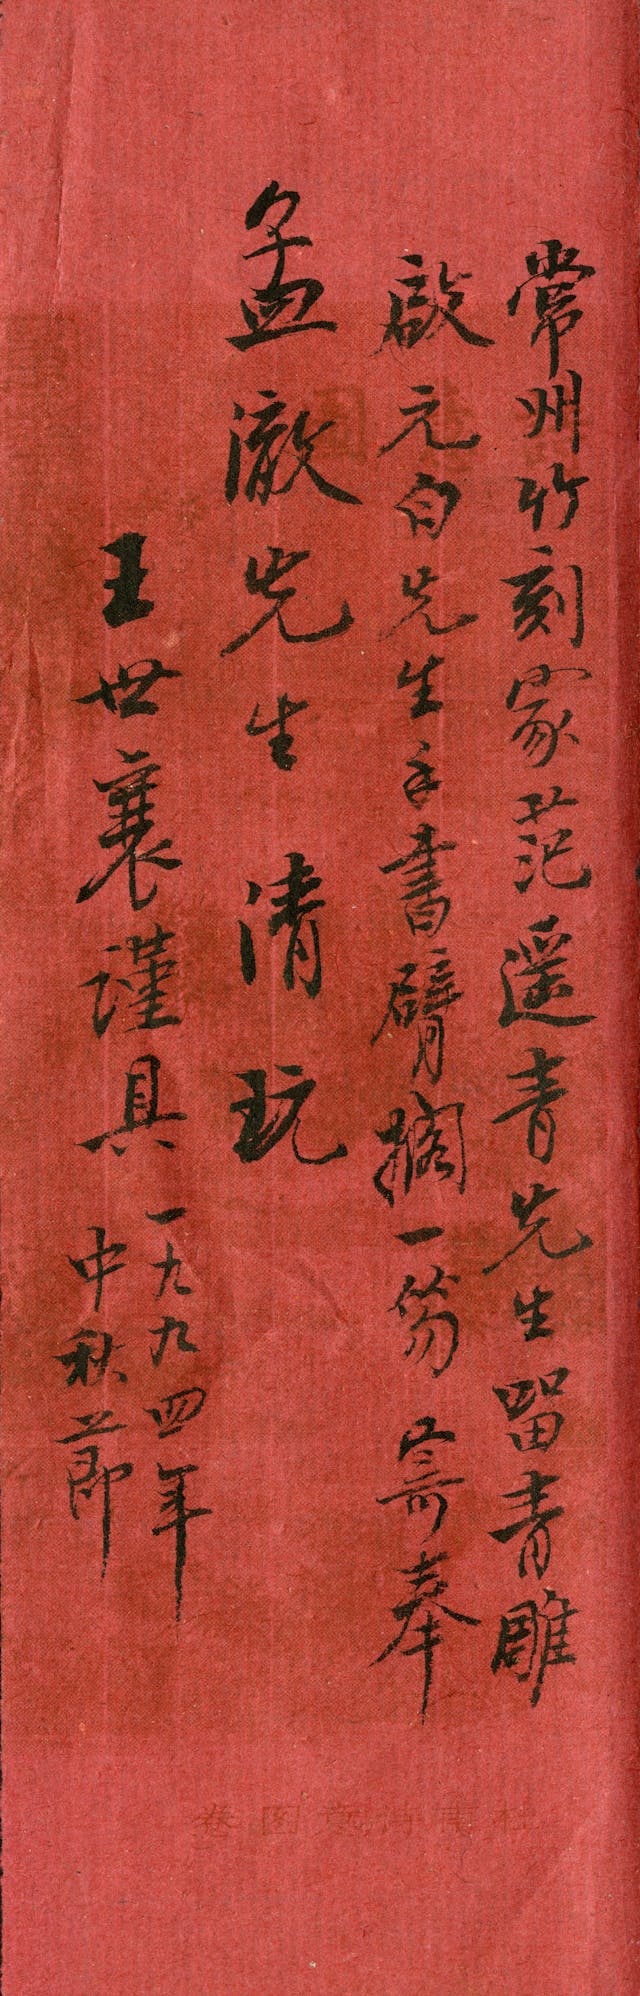 常州竹刻家范遥青先生留青雕
啟元白先生手書臂搁一笏 寄奉
孟澈先生 清玩
王世襄謹具
一九九四年
中秋節